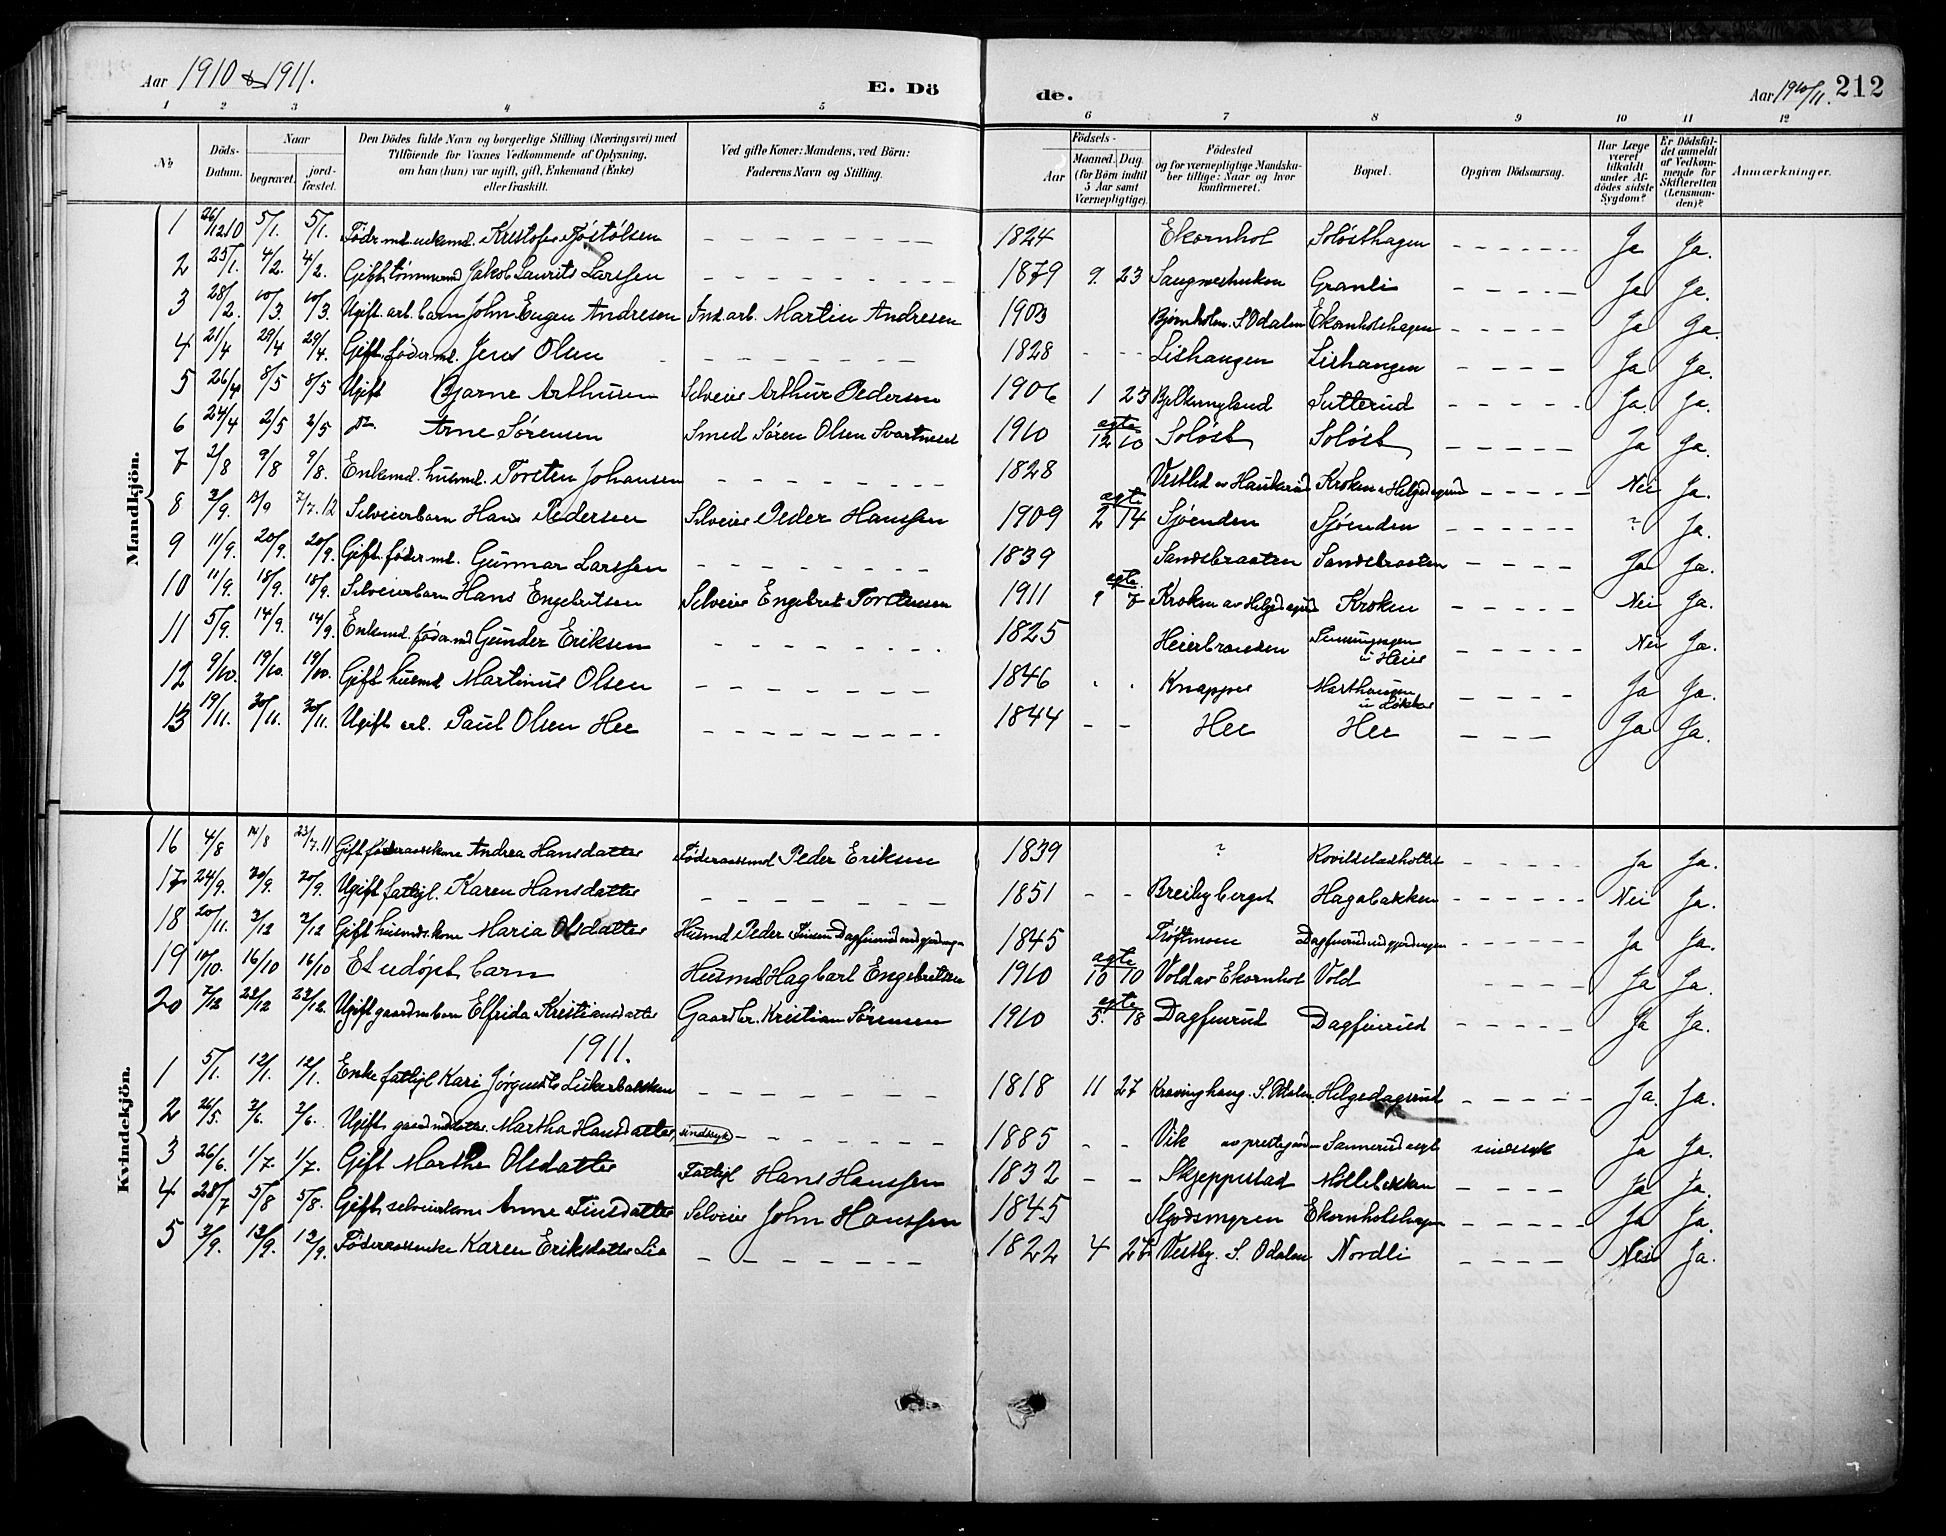 Aar 1910 & 1911. E. Dö de. Aar 1910/11. 212
1 2 3 4 5 6 7 8 9 10 11 12
No Döds-Datum. Naar begravet. jord-fæstet. Den Dödes fulde Navn og borgerlige Stilling (Næringsvei) med Tilföiende for Voxnes Vedkommende af Oplysning, om han (hun) var ugift, gift, Enkemand (Enke) eller fraskilt. Ved gifte Koner: Mandens, ved Börn: Faderens Navn og Stilling. Födsels- Aar Maaned. Dag. (for Börn indtil 5 Aar samt Værnepligtige). Födested og for værnepligtige Mandskaber tillige: Naar og hvor konfirmeret. Bopæl. Opgiven Dödsaarsag. Har Læge været tilkaldt under Afdödes sidste Sygdom? Er Dödsfaldet anmeldt af Vedkommende for Skifteretten (Lensmanden)? Anmærkninger.
Mandkjön.
1 26/12 10 5/1. 5/1. Kristofer 1824 Ekornhol Solösthagen Ja Ja.
2 25/1. 4/2. 4/2. Gift tömmermd Jakob Laurits Larssen 1879 9. 23 Granli Ja Ja.
3 28/2. 10/3. 10/3. Ugift arb. barn John Eugen Andresen Ind. arb. Martin Andresen 1903 Bjørnholm. S. Odalen Ekornholshagen Ja Ja.
4 21/4 29/4 29/4. Gift föder.md. Jens Olsen 1828 - - Lishaugen Lishaugen Ja Ja.
5 26/4 8/5 8/5 Ugift Bjarne Arthusen Selveier Arthur Pedersen 1906 1 23 Sutterud Ja. Ja.
6 24/4 2/5 2/5 Do. Arne Sörensen Smed Sören Olsen Svartneset 1910 ægte 12 10 Solöst Solöst Ja Ja.
7 2/8 9/8 9/8. Enkemd. husmd. Torsten Johansen 1828 Kroken Helgedagsrud Nei Ja.
8 3/9. 13/9 7/7.12 Selveierbarn Hans Pedersen Selveier Peder Hanssen 1909 ægte 2 14 Sjöenden Sjöenden ? Ja.
9 11/9. 20/9. 20/9. Gift. föder.md. Gunnar Larssen 1839 Sandsbraaten Sandsbraaten Ja Ja.
10 11/9. 18/9. 18/9. Selveierbarn Hans Engebretsen Selveier Engebret Torstensen 1911 ægte Kroken av Helgedagsrud Kroken Nei Ja.
11 5/9. 14/9. 14/9. Enkemd. föder.md Gunder Eriksen 1825 Heierbraaten u Heie Nei Ja.
12 9/10. 19/10. 19/10. Gift husmd Martinus Olsen 1846 Knapper Ja Ja.
13 19/11. 30/11. 30/11. Ugift arb. Paul Olsen Hee 1844 - - Hee Hee Ja Ja.
Kvindekjön.
16 4/8 14/8 23/7.11 Gift föderaadskone Andrea Hansdatter Föderaadsmd Peder Eriksen 1839 ? Ja Ja.
17 24/9. 30/9. 30/9. Ugift fattigl. Karen Hansdatter 1851 - - Breibyberget Hagabakken Nei Ja.
18 20/11. 3/12 3/12 Gift husmds.kone Maria Olsdatter Husmd Peder 1845 Ja Ja.
19 10/10. 16/10 16/10 Et udöpt barn Husmd Hagbart Engebretsen 1910 ægte 10 10 Vold av Ekornhol Vold Ja Ja.
20 7/12 23/12 23/12. Ugift gaardm.barn Elfrida Kristiansdatter Gaardbr. Kristian Sörensen 1910 ægte 5. 18 Dagfinrud Dagfinrud Ja Ja.
1911.
1 5/1. 12/1. 12/1. Enke fattigl Kari 1818 11 27 S. Odalen Helgedagsrud Ja. Ja.
2 26/5. 2/6. 2/6. Ugift gaardm.datter. Martha Hansdatter sindssyk 1885 - - Vik sindssyk Ja Ja.
3 26/6. 1/7. 1/7. Gift Marthe Olsdatter Fattigl Hans Hanssen 1832 - - Skjeppestad Möllebakken Ja Ja.
4 28/7 5/8 5/8. Gift selveierkone Anne Finsdatter Selveier John Hanssen 1845 Ekornholshagen Ja Ja.
5 3/9. 12/9. 12/9. Föderaadsenke Karen Eriksdatter Lie 1822 4 27 Vestby. S. Odalen Nordli Nei Ja.